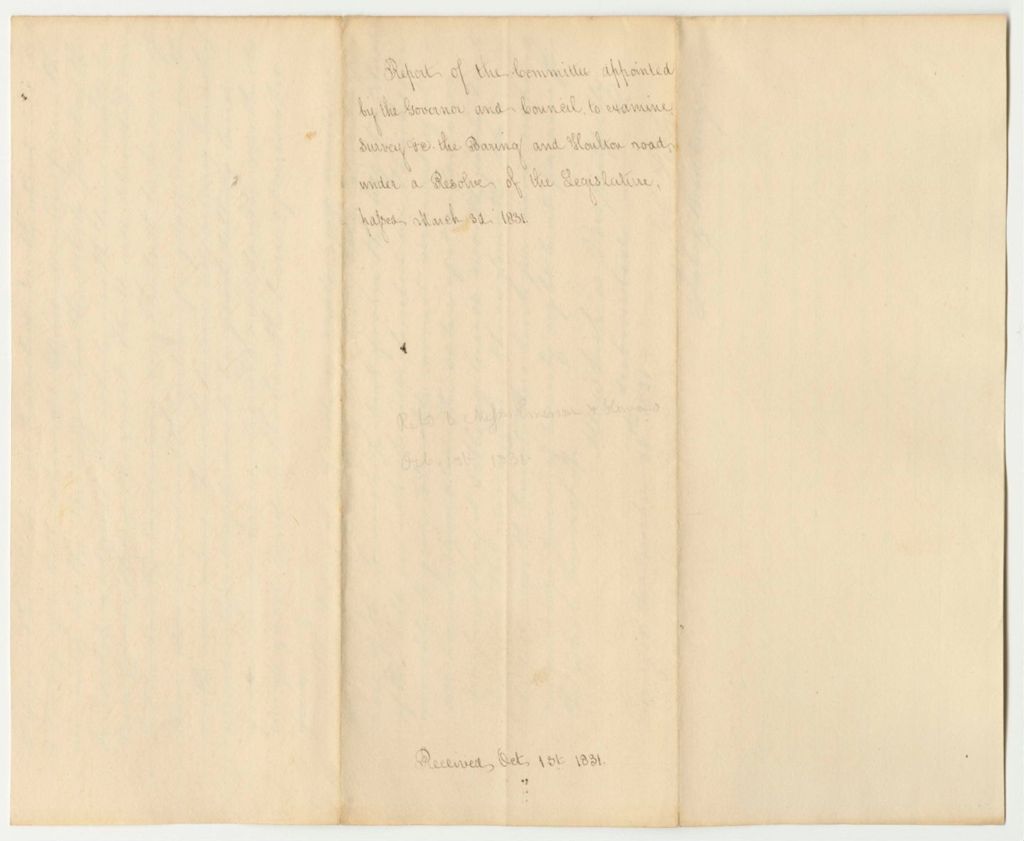 Report of the Committee appointed
by the Governor and Council, to examine,
Survey &c. the Baring and Houlton road,
under a Resolve of the Legislature,
passed March 31. 1831.
Oct. 1st 1831.
Received, Oct. 1st 1831.